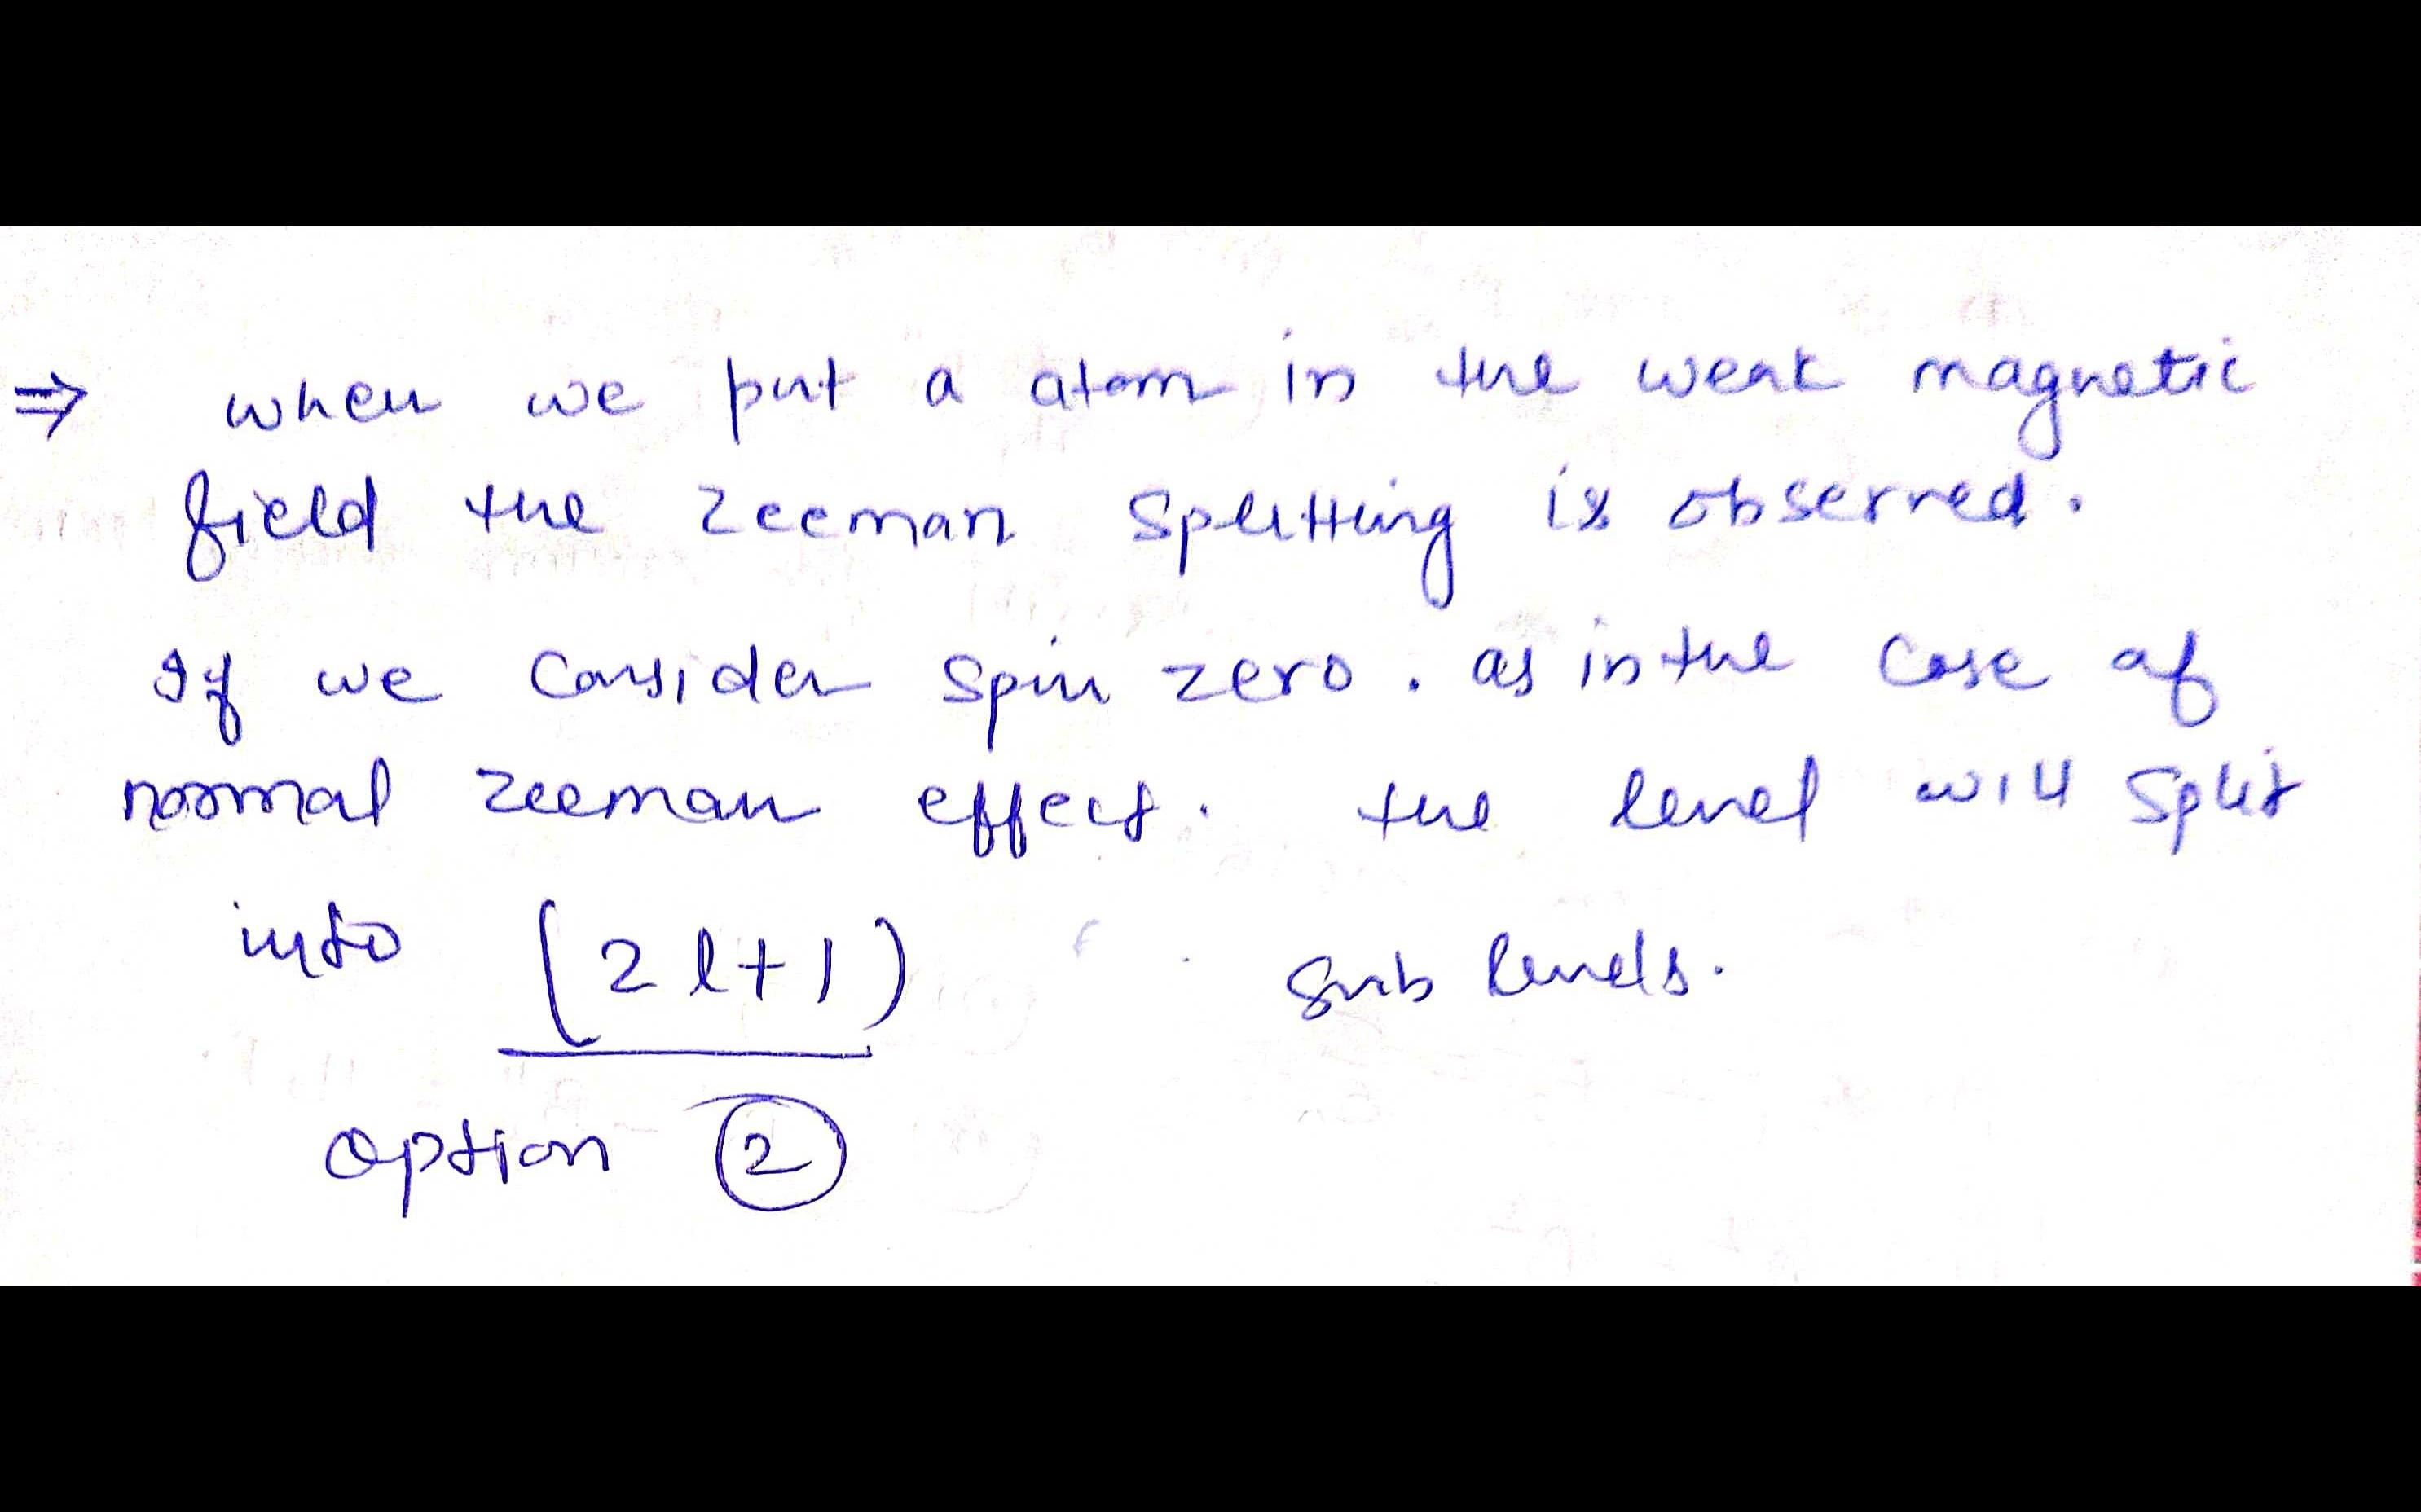 ⇒ when we put a atom in the weak magnetic
field the zeeman splitting is observed.
If we consider spin zero. as in the case of
normal zeeman effect. the level will split
into (2l+1) sub levels.
option ②